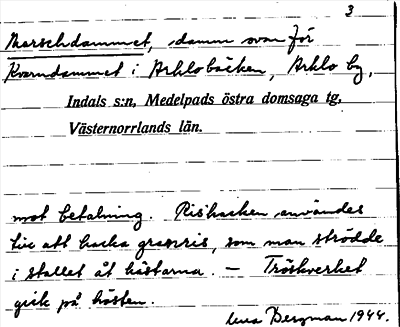 3
Marschdammet, damm ovanför
Kvarndammet i Arklobäcken, Arklo by,
Indals s:n, Medelpads östra domsaga tg,
Västernorrlands län.
mot betalning. Rishacken användes
till att hacka granris, som man strödde
i stallet åt hästarna. — Tröskverket
gick på hösten.
Bergman 1944.